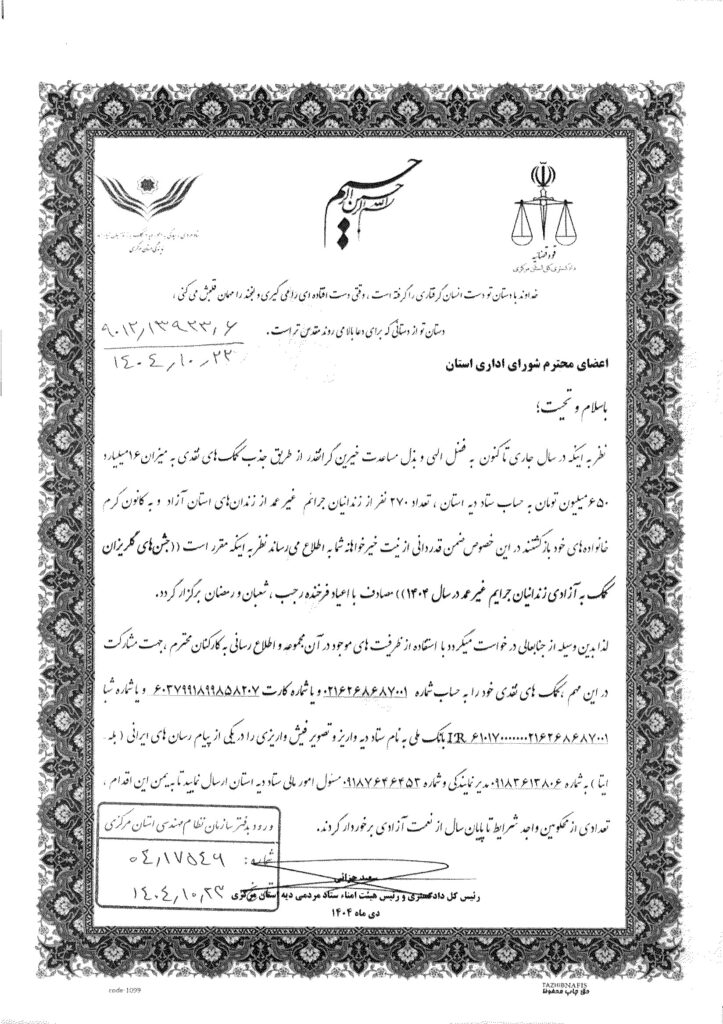 بسم الله الرحمن الرحیم
قوه قضائیه
دادگستری کل استان مرکزی
خداوند با دستان تو دست انسان گرفتاری را گرفته است ، وقتی دست افتاده ای را می گیری و لبخند را مهمان قلبش می کنی ،
دستان تو از دستانی که برای دعا بالا می روند مقدس تر است .
۹۰۱۲/۱۳۹۲۳/۶
۱۴۰۴/۱۰/۲۲
اعضای محترم شورای اداری استان
باسلام و تحیت؛
نظر به اینکه در سال جاری تاکنون به فضل الهی و بذل مساعدت خیرین گرانقدر از طریق جذب کمک های نقدی به میزان ۱۶میلیارد
۶۵۰میلیون تومان به حساب ستاد دیه استان ، تعداد ۲۷۰ نفر از زندانیان جرائم غیر عمد از زندان های استان آزاد و به کانون گرم
خانواده های خود بازگشتند در این خصوص ضمن قدردانی از نیت خیرخواهانه شما به اطلاع می رساند نظر به اینکه مقرر است ((جشن های گلریزان
کمک به آزادی زندانیان جرایم غیر عمد در سال ۱۴۰۴)) مصادف با اعیاد فرخنده رجب ، شعبان و رمضان برگزار گردد.
لذا بدین وسیله از جنابعالی در خواست میگردد با استفاده از ظرفیت های موجود در آن مجموعه و اطلاع رسانی به کارکنان محترم ، جهت مشارکت
در این مهم ، کمک های نقدی خود را به حساب شماره ۰۲۱۶۲۶۸۶۸۷۰۰۱ و یا شماره کارت ۶۰۳۷۹۹۱۸۹۹۸۵۸۲۰۷ و یا شماره شبا
IR ۶۱۰۱۷۰۰۰۰۰۰۰۲۱۶۲۶۸۶۸۷۰۰۱ بانک ملی به نام ستاد دیه واریز و تصویر فیش واریزی را در یکی از پیام رسان های ایرانی ( بله -
ایتا ) به شماره ۰۹۱۸۳۶۱۳۸۰۶ مدیر نمایندگی و شماره ۰۹۱۸۷۶۴۶۴۵۳ مسئول امور مالی ستاد دیه استان ارسال نمایید تا به یمن این اقدام ،
تعدادی از محکومین واجد شرایط تا پایان سال از نعمت آزادی برخوردار گردند.
ورود بدفتر سازمان نظام مهندسی استان مرکزی
شماره: ۰۴/۱۷۵۴۶
۱۴۰۴/۱۰/۲۳
سعید جزائی
رئیس کل دادگستری و رئیس هیئت امناء ستاد مردمی دیه استان مرکزی
دی ماه ۱۴۰۴
code-1099
TAZHIBNAFIS
حق چاپ محفوظ